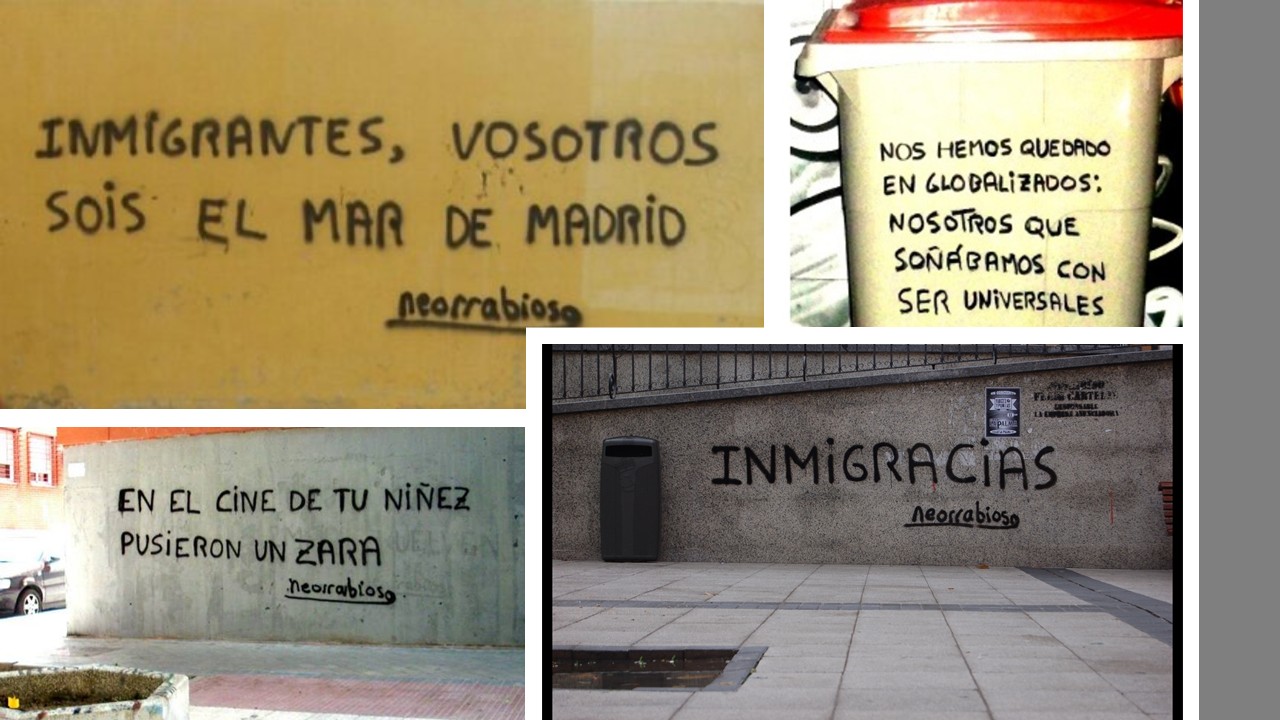 INMIGRANTES, VOSOTROS
SOIS EL MAR DE MADRID
neorrabioso
NOS HEMOS QUEDADO
EN GLOBALIZADOS:
NOSOTROS QUE
SOÑÁBAMOS CON
SER UNIVERSALES
EN EL CINE DE TU NIÑEZ
PUSIERON UN ZARA
neorrabioso
FIJAR CARTELES
RESPONSABLE
LA EMPRESA ANUNCIADORA
INMIGRACIAS
neorrabioso